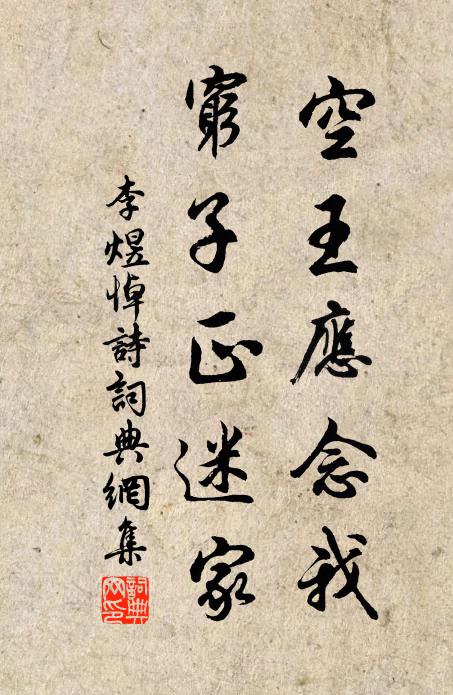 空王應念我
窮子正迷家
李煜悼詩詞典網集
詞典網印